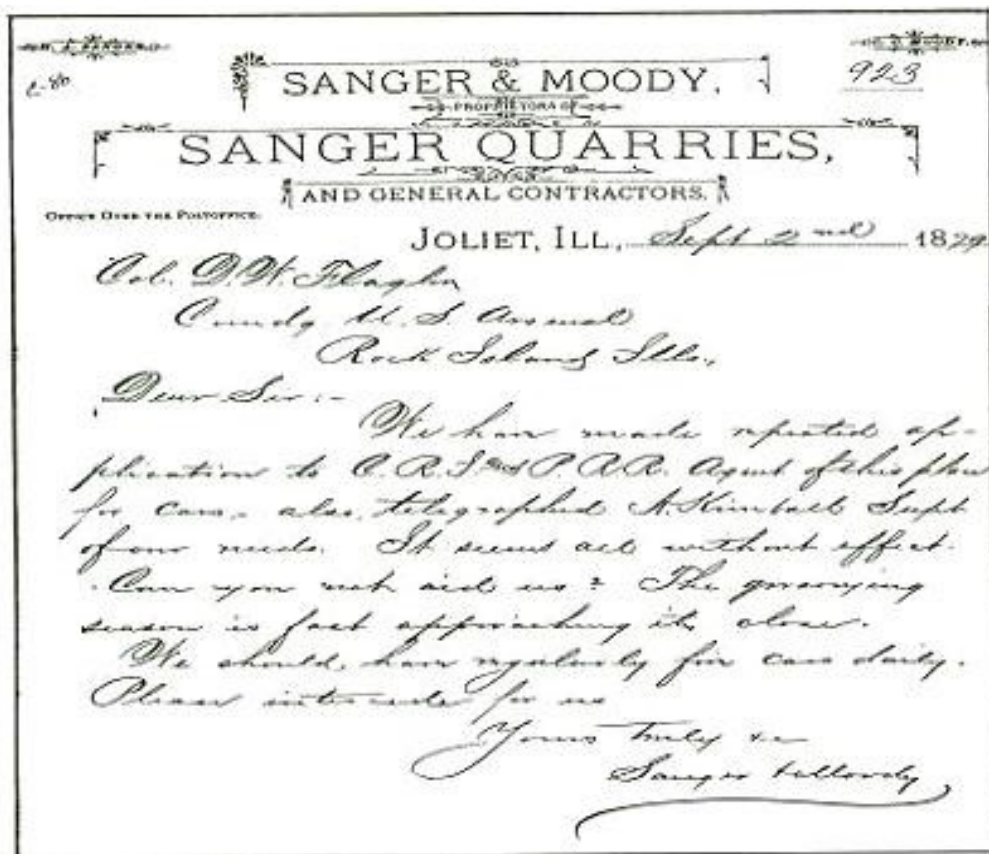 H. A. SANGER. C. O. MOODY.
923
SANGER & MOODY,
PROPRIETORS OF
SANGER QUARRIES,
AND GENERAL CONTRACTORS.
OFFICE OVER THE POSTOFFICE.
JOLIET, ILL., Sept 2nd 1879
Col. D. W. Flagler
Comdg U. S. Arsenal
Rock Island Ills.,
Dear Sir:-
We have made repeated ap-
plication to C. R. I. and P. R. R. Agent of this place
for cars, also, telegraphed A. Kimball Supt
of our needs. It seems all without effect.
Can you not aid us? The quarrying
season is fast approaching its close.
We should have regularly five cars daily.
Please intercede for us
Yours truly &c
Sanger & Moody